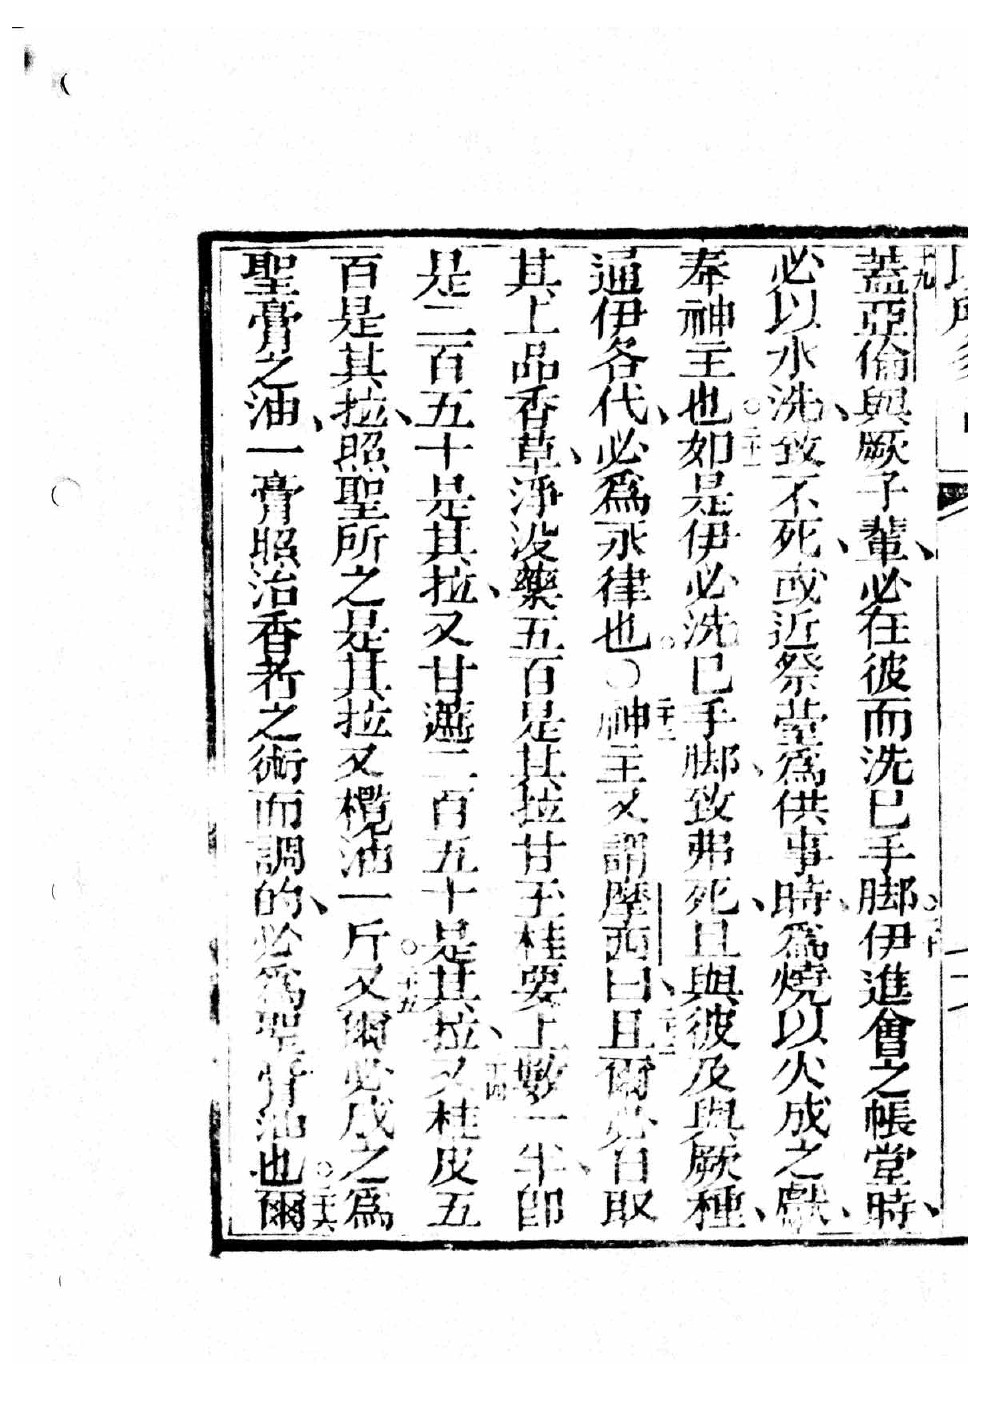 十九蓋亞倫與厥子輩、必在彼而洗已手脚。二十伊進會之帳堂時、
必以水洗、致不死、或近祭臺爲供事時、爲燒以火成之獻、
奉神主也。二十一如是伊必洗已手脚、致弗死、且與彼及與厥種、
通伊各代、必爲永律也。○二十二神主又謂摩西曰、二十三且爾必自取
其上品香草、淨没藥五百是其拉甘子桂要上數一半、卽
是二百五十是其拉、又甘薳二百五十是其拉、二十四又桂皮五
百是其拉、照聖所之是其拉又欖油一斤。二十五又爾必成之爲
聖膏之油、一膏照治香者之術而調的、必爲聖膏油也。二十六爾